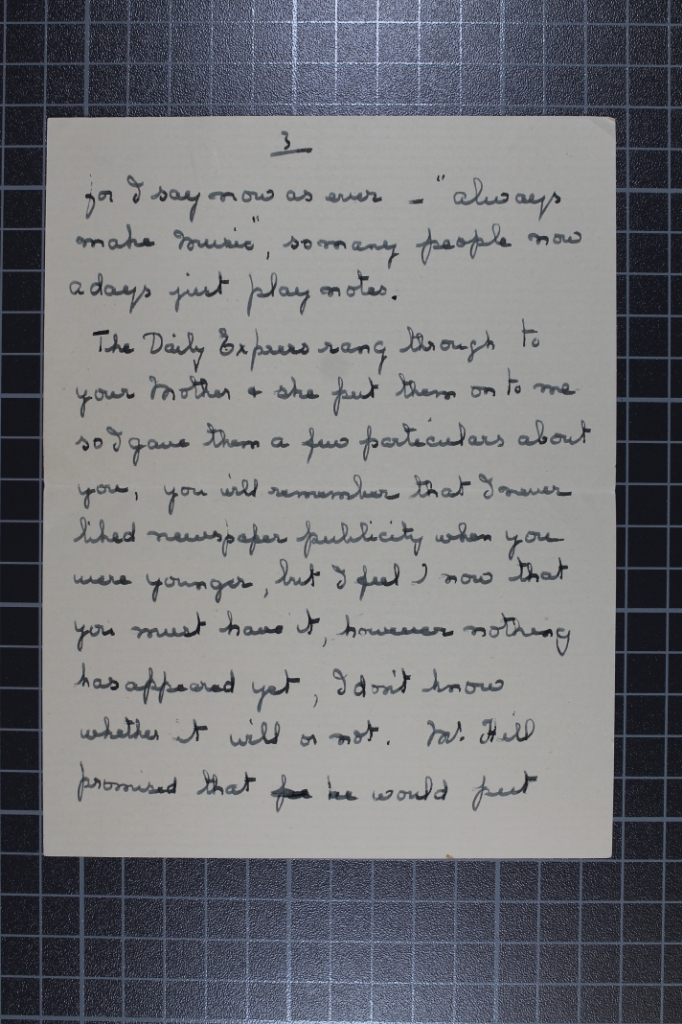 3
for I say now as ever - "always
make music", so many people now
adays just play notes.
The Daily Express rang through to
your Mother & she put them on to me
so I gave them a few particulars about
you, you will remember that I never
liked newspaper publicity when you
were younger, but I feel now that
you must have it, however nothing
has appeared yet, I don't know
whether it will or not. Mr. Hill
promised that he would put